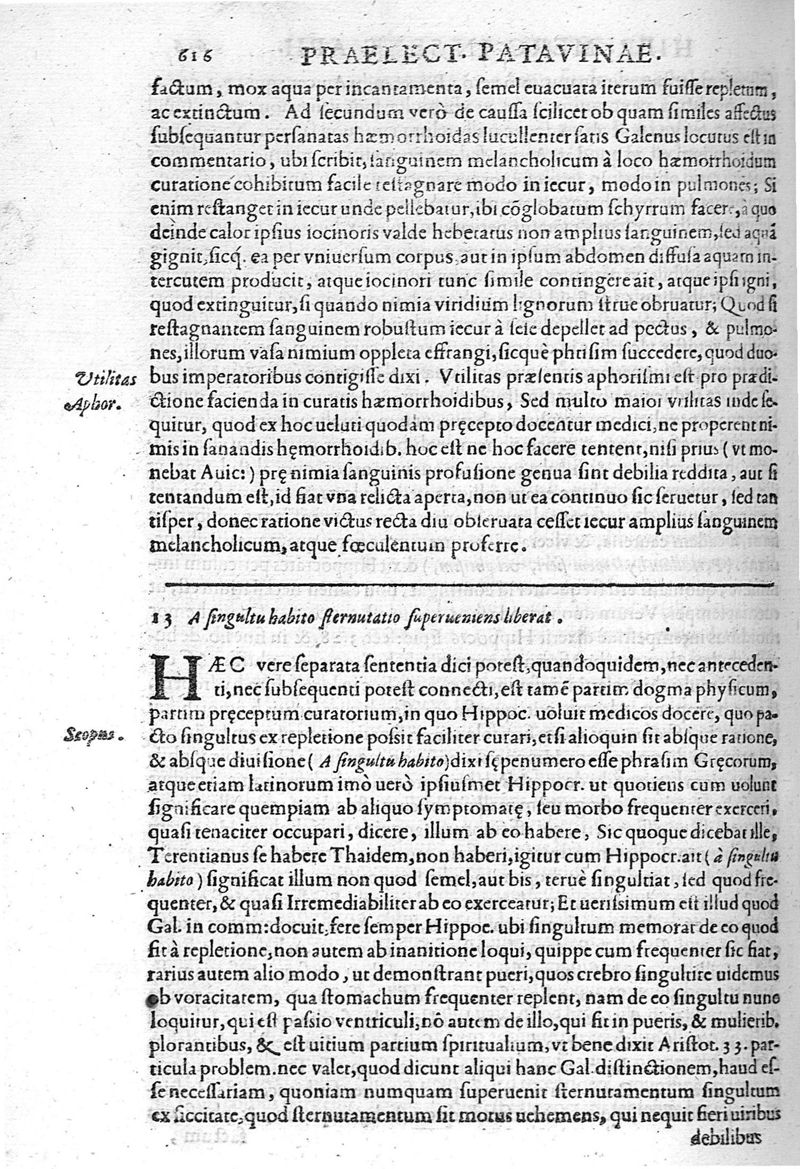 616 PRAELECT. PATAVINAE.
factum, mox aqua per incantamenta, ſemel euacuata iterum fuiſſe repletum,
ac extinctum. Ad ſecundum verò de cauſſa ſcilicet ob quam ſimiles affectus
ſubſequantur perſanatas hæmorrhoidas lucullenter ſatis Galenus locutus eſt in
commentario, ubi ſcribit, ſanguinem melancholicum à loco hæmorrhoidum
curatione cohibitum facile reſtagnare modo in iecur, modo in pulmones; Si
enim reſtanget in iecur unde pellebatur, ibi cõglobatum ſchyrrum facere, à quo
deinde calor ipſius iocinoris valde hebetatus non amplius ſanguinem, ſed aquã
gignit, ſicq́. ea per vniuerſum corpus aut in ipſum abdomen diffuſa aquam in-
tercutem producit, atque iocinori tunc ſimile contingere ait, atque ipſi igni,
quod extinguitur, ſi quando nimia viridium lignorum ſtrue obruatur; Quod ſi
reſtagnantem ſanguinem robuſtum iecur à ſeie depellet ad pectus, & pulmo-
nes, illorum vaſa nimium oppleta effrangi, ſicquè phtiſim ſuccedere, quod duo-
Vtilitas
bus imperatoribus contigiſſe dixi. Vtilitas præſentis aphoriſmi eſt pro prædi-
Aphor.
ctione facienda in curatis hæmorrhoidibus, Sed multo maior vtilitas inde ſe-
quitur, quod ex hoc ueluti quodam pręcepto docentur medici, ne properent ni-
mis in ſanandis hęmorrhoidib. hoc eſt ne hoc facere tentent, niſi prius (vt mo-
nebat Auic:) prę nimia ſanguinis profuſione genua ſint debilia reddita, aut ſi
tentandum eſt, id fiat vna relicta aperta, non ut ea continuo ſic ſeruetur, ſed tan
tiſper, donec ratione victus recta diu obſeruata ceſſet iecur amplius ſanguinem
melancholicum, atque fœculentum proferre.
13 A ſingultu habito ſternutatio ſuperueniens liberat.
HÆC vere ſeparata ſententia dici poteſt, quandoquidem, nec anteceden-
ti, nec ſubſequenti poteſt connecti, eſt tamē partim dogma phyſicum,
partim pręceptum curatorium, in quo Hippoc. uoluit medicos docere, quo pa-
Scopus.
cto ſingultus ex repletione poſsit faciliter curari, etſi alioquin ſit abſque ratione,
& abſque diuiſione (A ſingultu habito) dixi ſępenumero eſſe phraſim Gręcorum,
atque etiam latinorum imò uerò ipſiuſmet Hippocr. ut quotiens cum uolunt
ſignificare quempiam ab aliquo ſymptomatę, ſeu morbo frequenter exerceri,
quaſi tenaciter occupari, dicere, illum ab eo habere, Sic quoque dicebat ille,
Terentianus ſe habere Thaidem, non haberi, igitur cum Hippocr. ait (à ſingultu
habito) ſignificat illum non quod ſemel, aut bis, teruè ſingultiat, ſed quod fre-
quenter, & quaſi Irremediabiliter ab eo exerceatur; Et ueriſsimum eſt illud quod
Gal. in comm: docuit, fere ſemper Hippoc. ubi ſingultum memorat de eo quod
fit à repletione, non autem ab inanitione loqui, quippe cum frequenter ſic fiat,
rarius autem alio modo, ut demonſtrant pueri, quos crebro ſingultire uidemus
ob voracitatem, qua ſtomachum frequenter replent, nam de eo ſingultu nunc
loquitur, qui eſt paſsio ventriculi, nō autem de illo, qui fit in pueris, & mulierib.
plorantibus, & eſt uitium partium ſpiritualium, vt bene dixit Ariſtot. 33. par-
ticula problem. nec valet, quod dicunt aliqui hanc Gal. diſtinctionem, haud eſ-
ſe neceſſariam, quoniam numquam ſuperuenit ſternutamentum ſingultum
ex ſiccitate, quod ſternutamentum ſit motus uehemens, qui nequit fieri uiribus
debilibus